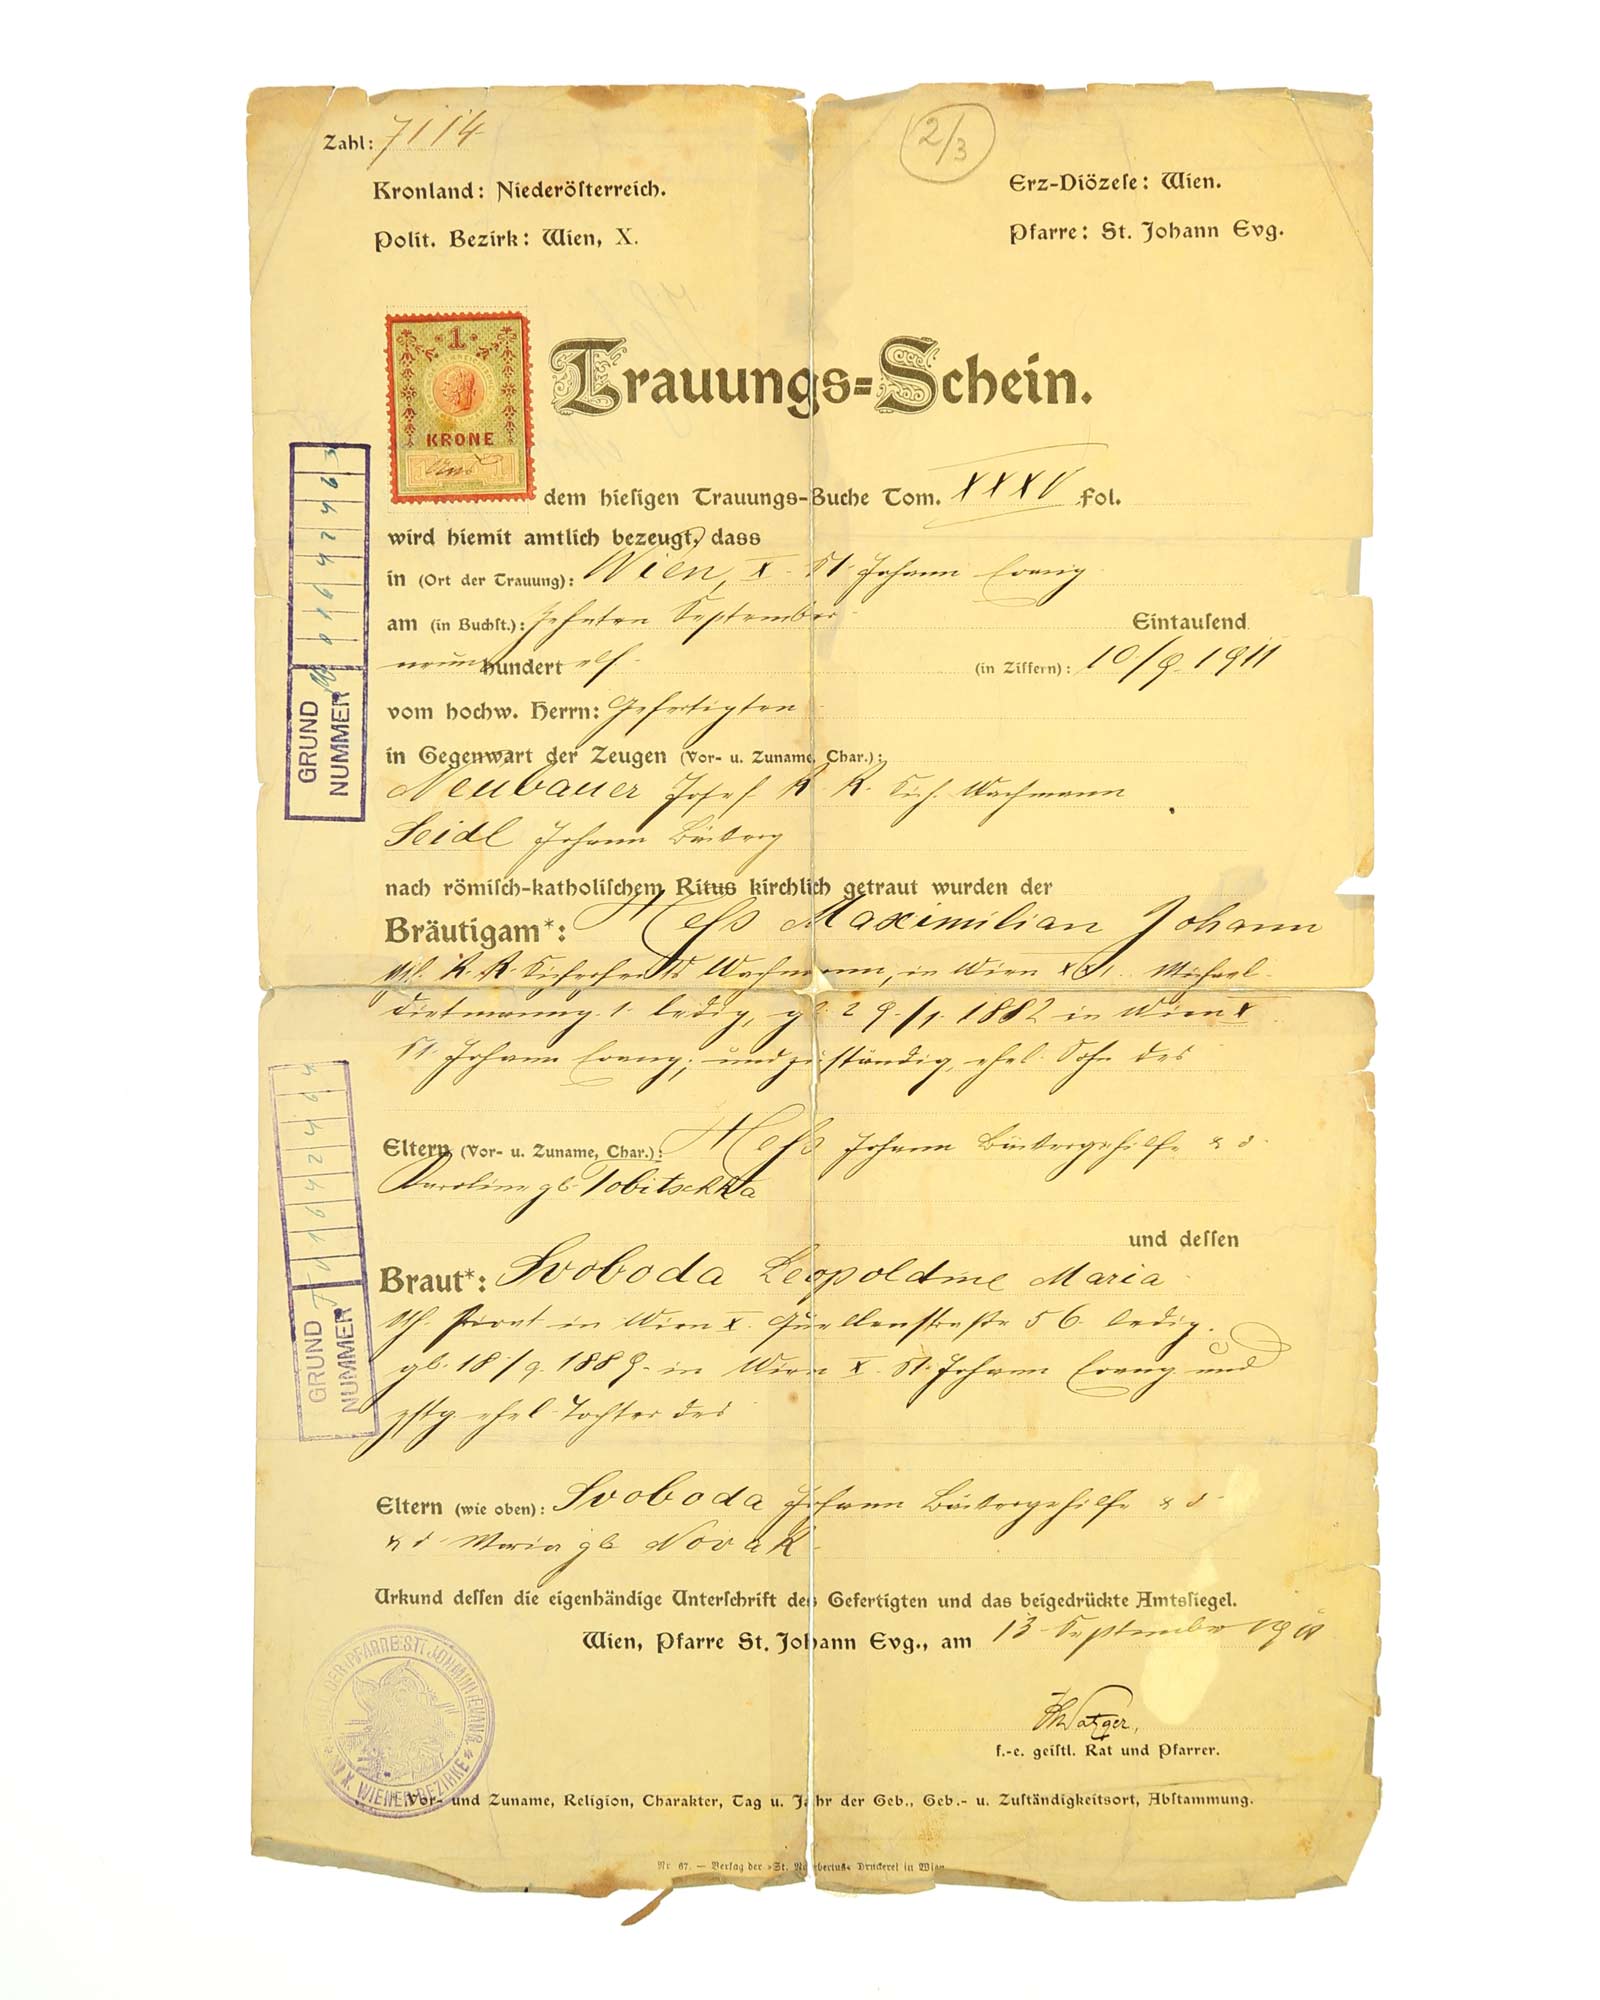 Zahl: 7114
2/3
Kronland: Niederösterreich.
Erz-Diözese: Wien.
Polit. Bezirk: Wien, X.
Pfarre: St. Johann Evg.
1
KRONE
Trauungs=Schein.
dem hiesigen Trauungs-Buche Tom. XXXV fol.
wird hiemit amtlich bezeugt, dass
in (Ort der Trauung): Wien, X. St. Johann Evang
am (in Buchst.): Zehnten September Eintausend
neun hundert elf (in Ziffern): 10/9. 1911
vom hochw. Herrn: Gefertigten
in Gegenwart der Zeugen (Vor- u. Zuname, Char.):
Neubauer Josef K. K. Sich. Wachmann
Seidl Johann
nach römisch-katholischem Ritus kirchlich getraut wurden der
Bräutigam*: Heß Maximilian Johann
K. K. Sicherheits Wachmann, in Wien XXI. Michael
Dietmanng. 1. ledig, gb. 29./1. 1882 in Wien X
St. Johann Evang; und zuständig, ehel. Sohn des
Eltern (Vor- u. Zuname, Char.): Heß Johann Bäckergehilfe & d
Karoline gb. Tobitschka
und dessen
Braut*: Svoboda Leopoldine Maria
kth. Privat in Wien X. Quellenstraße 56 ledig.
gb. 18./9. 1889. in Wien X. St. Johann Evang und
zstg ehel Tochter des
Eltern (wie oben): Svoboda Johann Bäckergehilfe & d
& d Maria gb Novak
Urkund dessen die eigenhändige Unterschrift des Gefertigten und das beigedrückte Amtssiegel.
Wien, Pfarre St. Johann Evg., am 13 September 1911
f.-e. geistl. Rat und Pfarrer.
DER PFARRE ST. JOHANN EVANG. X. WIENER BEZIRKE
* Vor- und Zuname, Religion, Charakter, Tag u. Jahr der Geb., Geb.- u. Zuständigkeitsort, Abstammung.
Nr. 67. — Verlag der »St. Norbertus« Druckerei in Wien
GRUND
NUMMER
GRUND
NUMMER